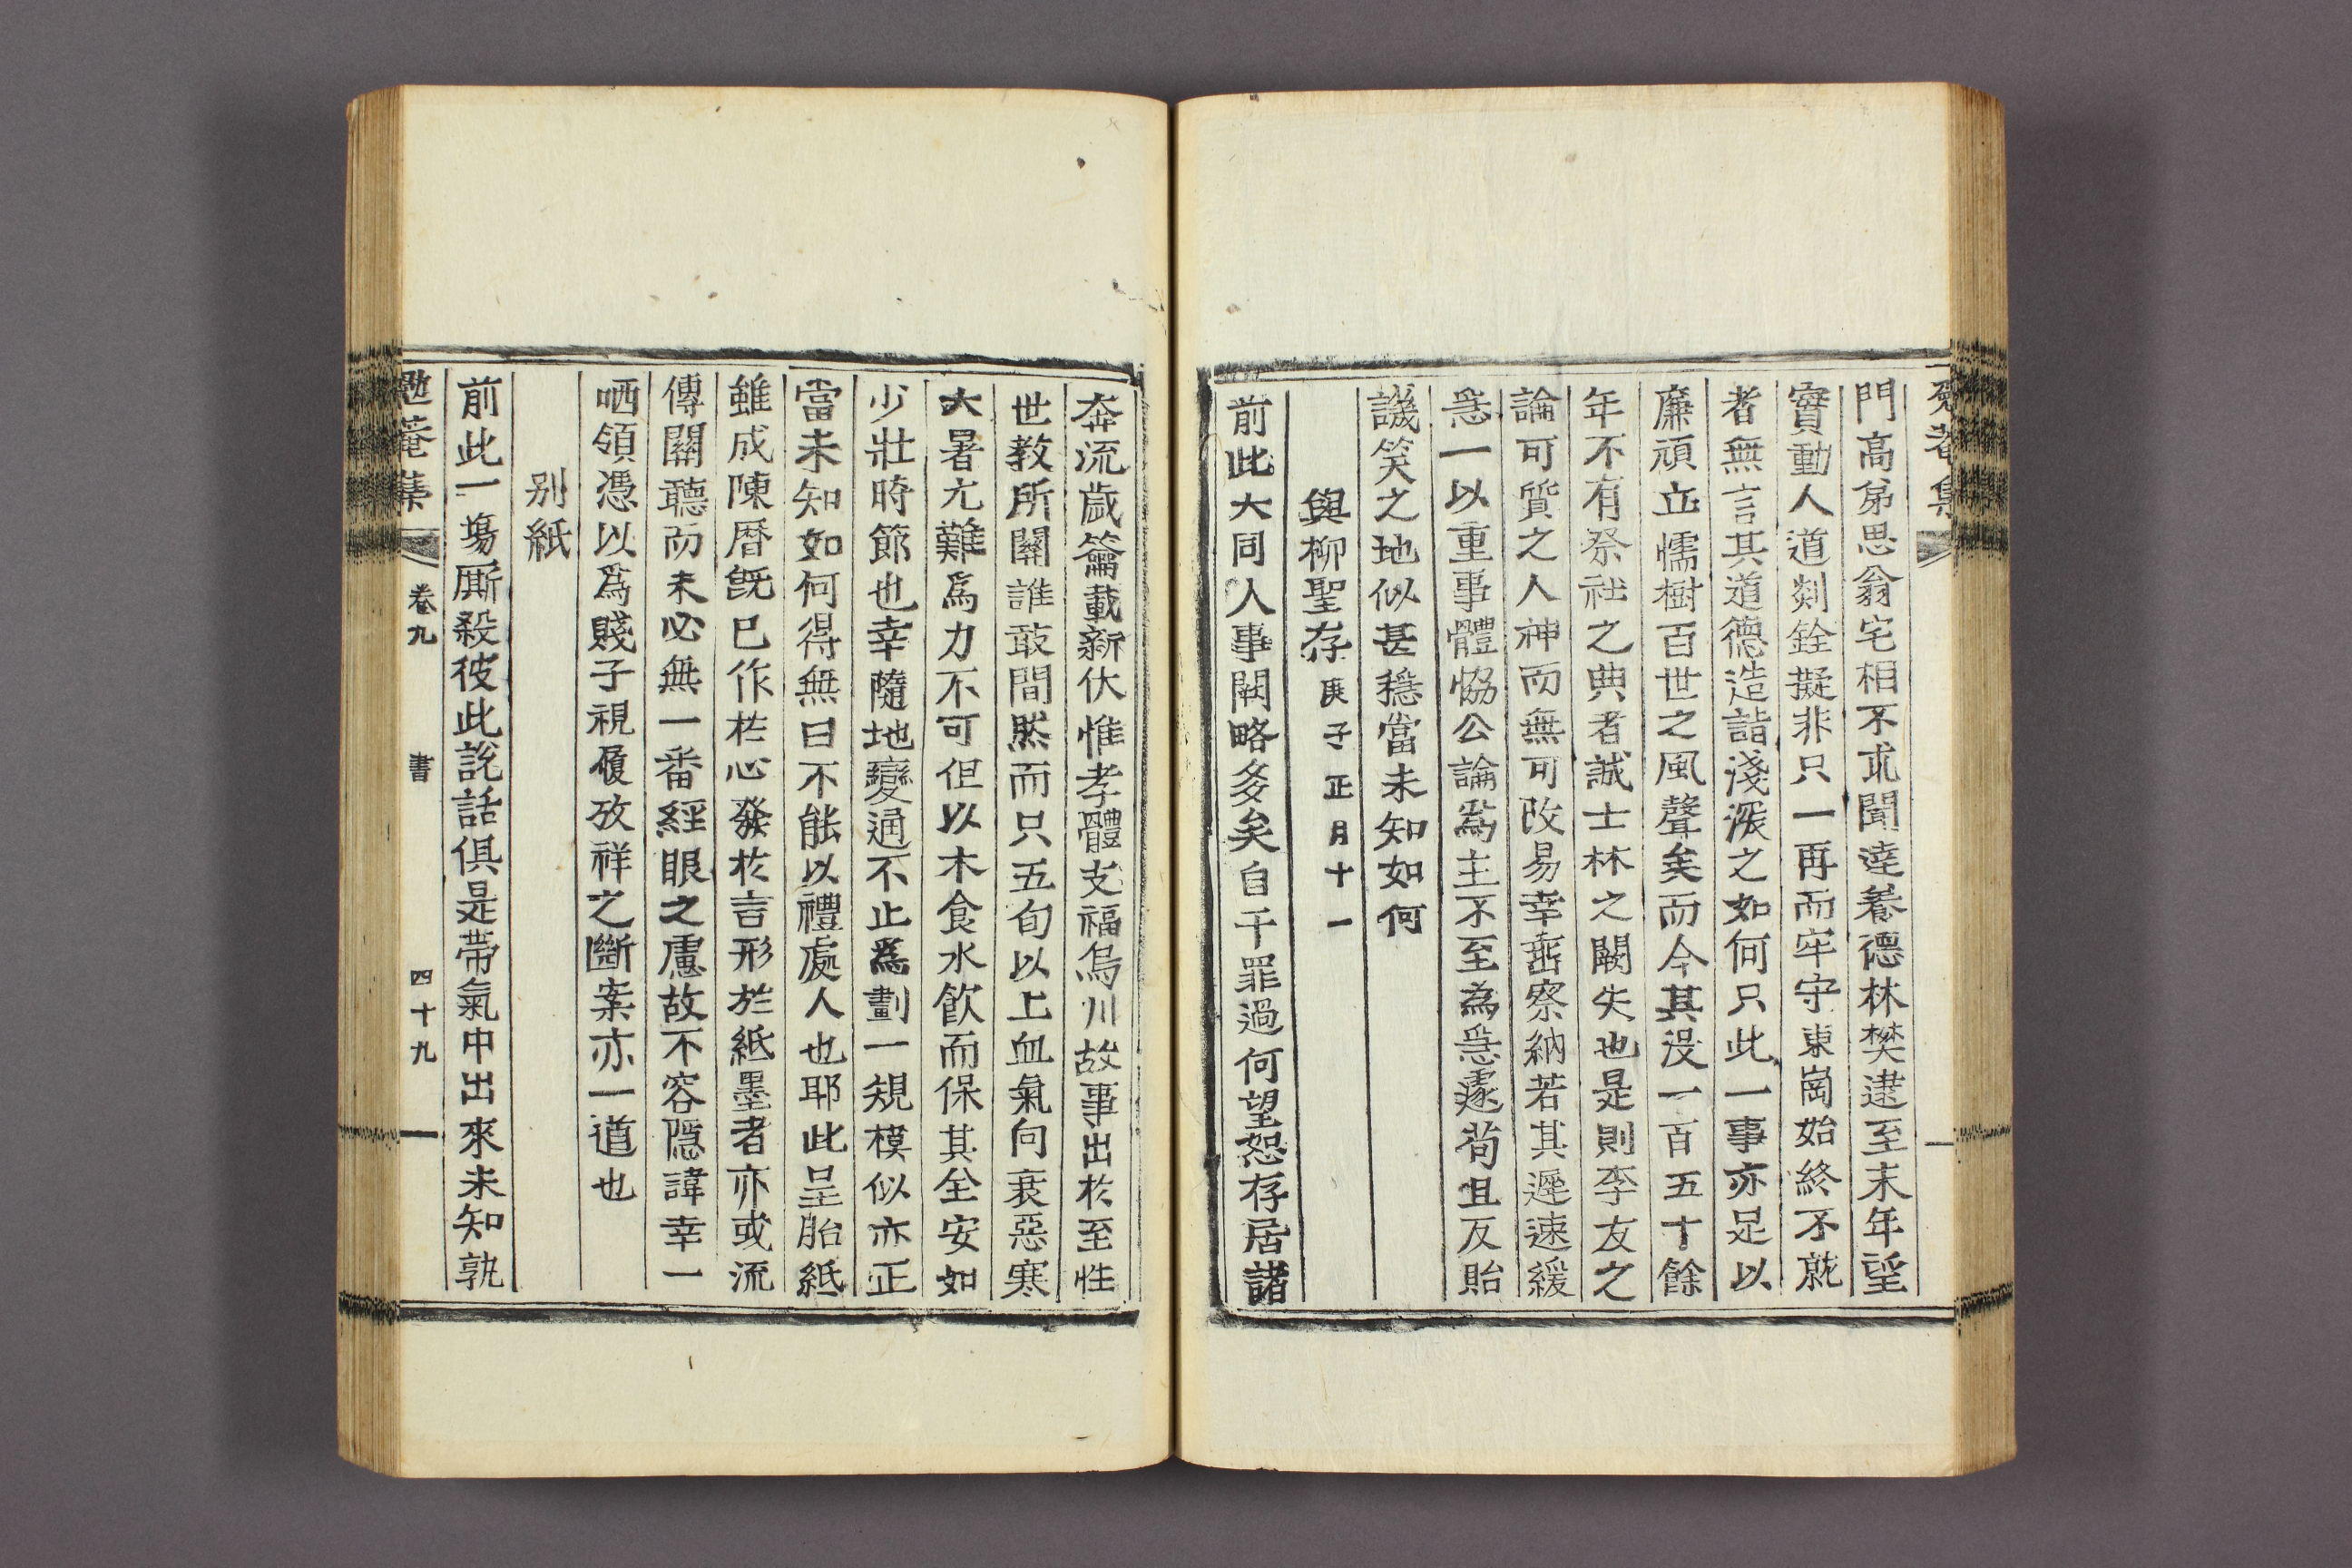 勉菴集
門高弟思翁宅相不求聞達養德林樊逮至末年望
實動人道剡銓擬非只一再而牢守東崗始終不就
者無言其道德造詣淺深之如何只此一事亦足以
廉頑立懦樹百世之風聲矣而今其沒一百五十餘
年不有祭社之典者誠士林之闕失也是則李友之
論可質之人神而無可改易幸崇察納若其遲速緩
急一以重事體恊公論爲主不至為急遽苟且反貽
譏笑之地似甚穩當未知如何
與柳聖存 庚子正月十一
前此大同人事闕略多矣自干罪過何望恕存居諸
奔流歲籥載新伏惟孝體支福烏川故事出於至性
世教所關誰敢間然而只五旬以上血氣向衰惡寒
大暑尤難爲力不可但以木食水飮而保其全安如
少壯時節也幸隨地變通不止爲劃一規模似亦正
當未知如何得無曰不能以禮處人也耶此呈胎紙
雖成陳曆旣已作於心發於言形於紙墨者亦或流
傳關聽而未必無一番經眼之慮故不容隱諱幸一
哂領憑以爲賤子視履攷祥之斷案亦一道也
別紙
前此一塲厮殺彼此說話俱是帶氣中出來未知孰
勉菴集 卷九 書 四十九